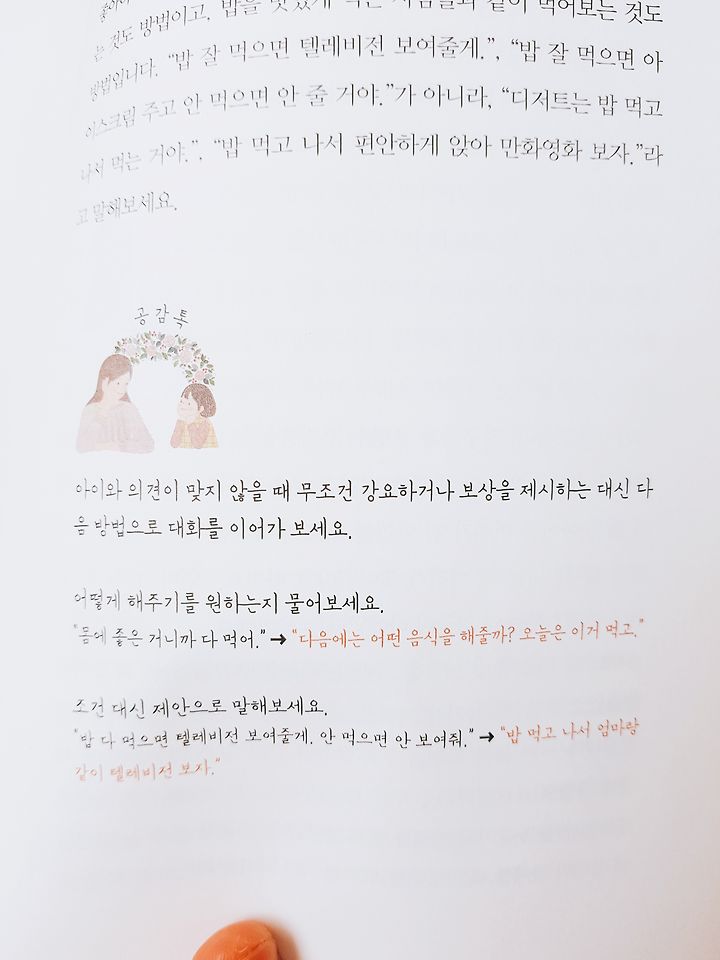 는 것도 방법이고, 밥을 맛있게 먹는 사람들과 같이 먹어보는 것도
방법입니다. “밥 잘 먹으면 텔레비전 보여줄게.”, “밥 잘 먹으면 아
이스크림 주고 안 먹으면 안 줄 거야.”가 아니라, “디저트는 밥 먹고
나서 먹는 거야.”, “밥 먹고 나서 편안하게 앉아 만화영화 보자.”라
고 말해보세요.
공감톡
아이와 의견이 맞지 않을 때 무조건 강요하거나 보상을 제시하는 대신 다
음 방법으로 대화를 이어가 보세요.
어떻게 해주기를 원하는지 물어보세요.
“몸에 좋은 거니까 다 먹어.” → “다음에는 어떤 음식을 해줄까? 오늘은 이거 먹고.”
조건 대신 제안으로 말해보세요.
“밥 다 먹으면 텔레비전 보여줄게. 안 먹으면 안 보여줘.” → “밥 먹고 나서 엄마랑
같이 텔레비전 보자.”